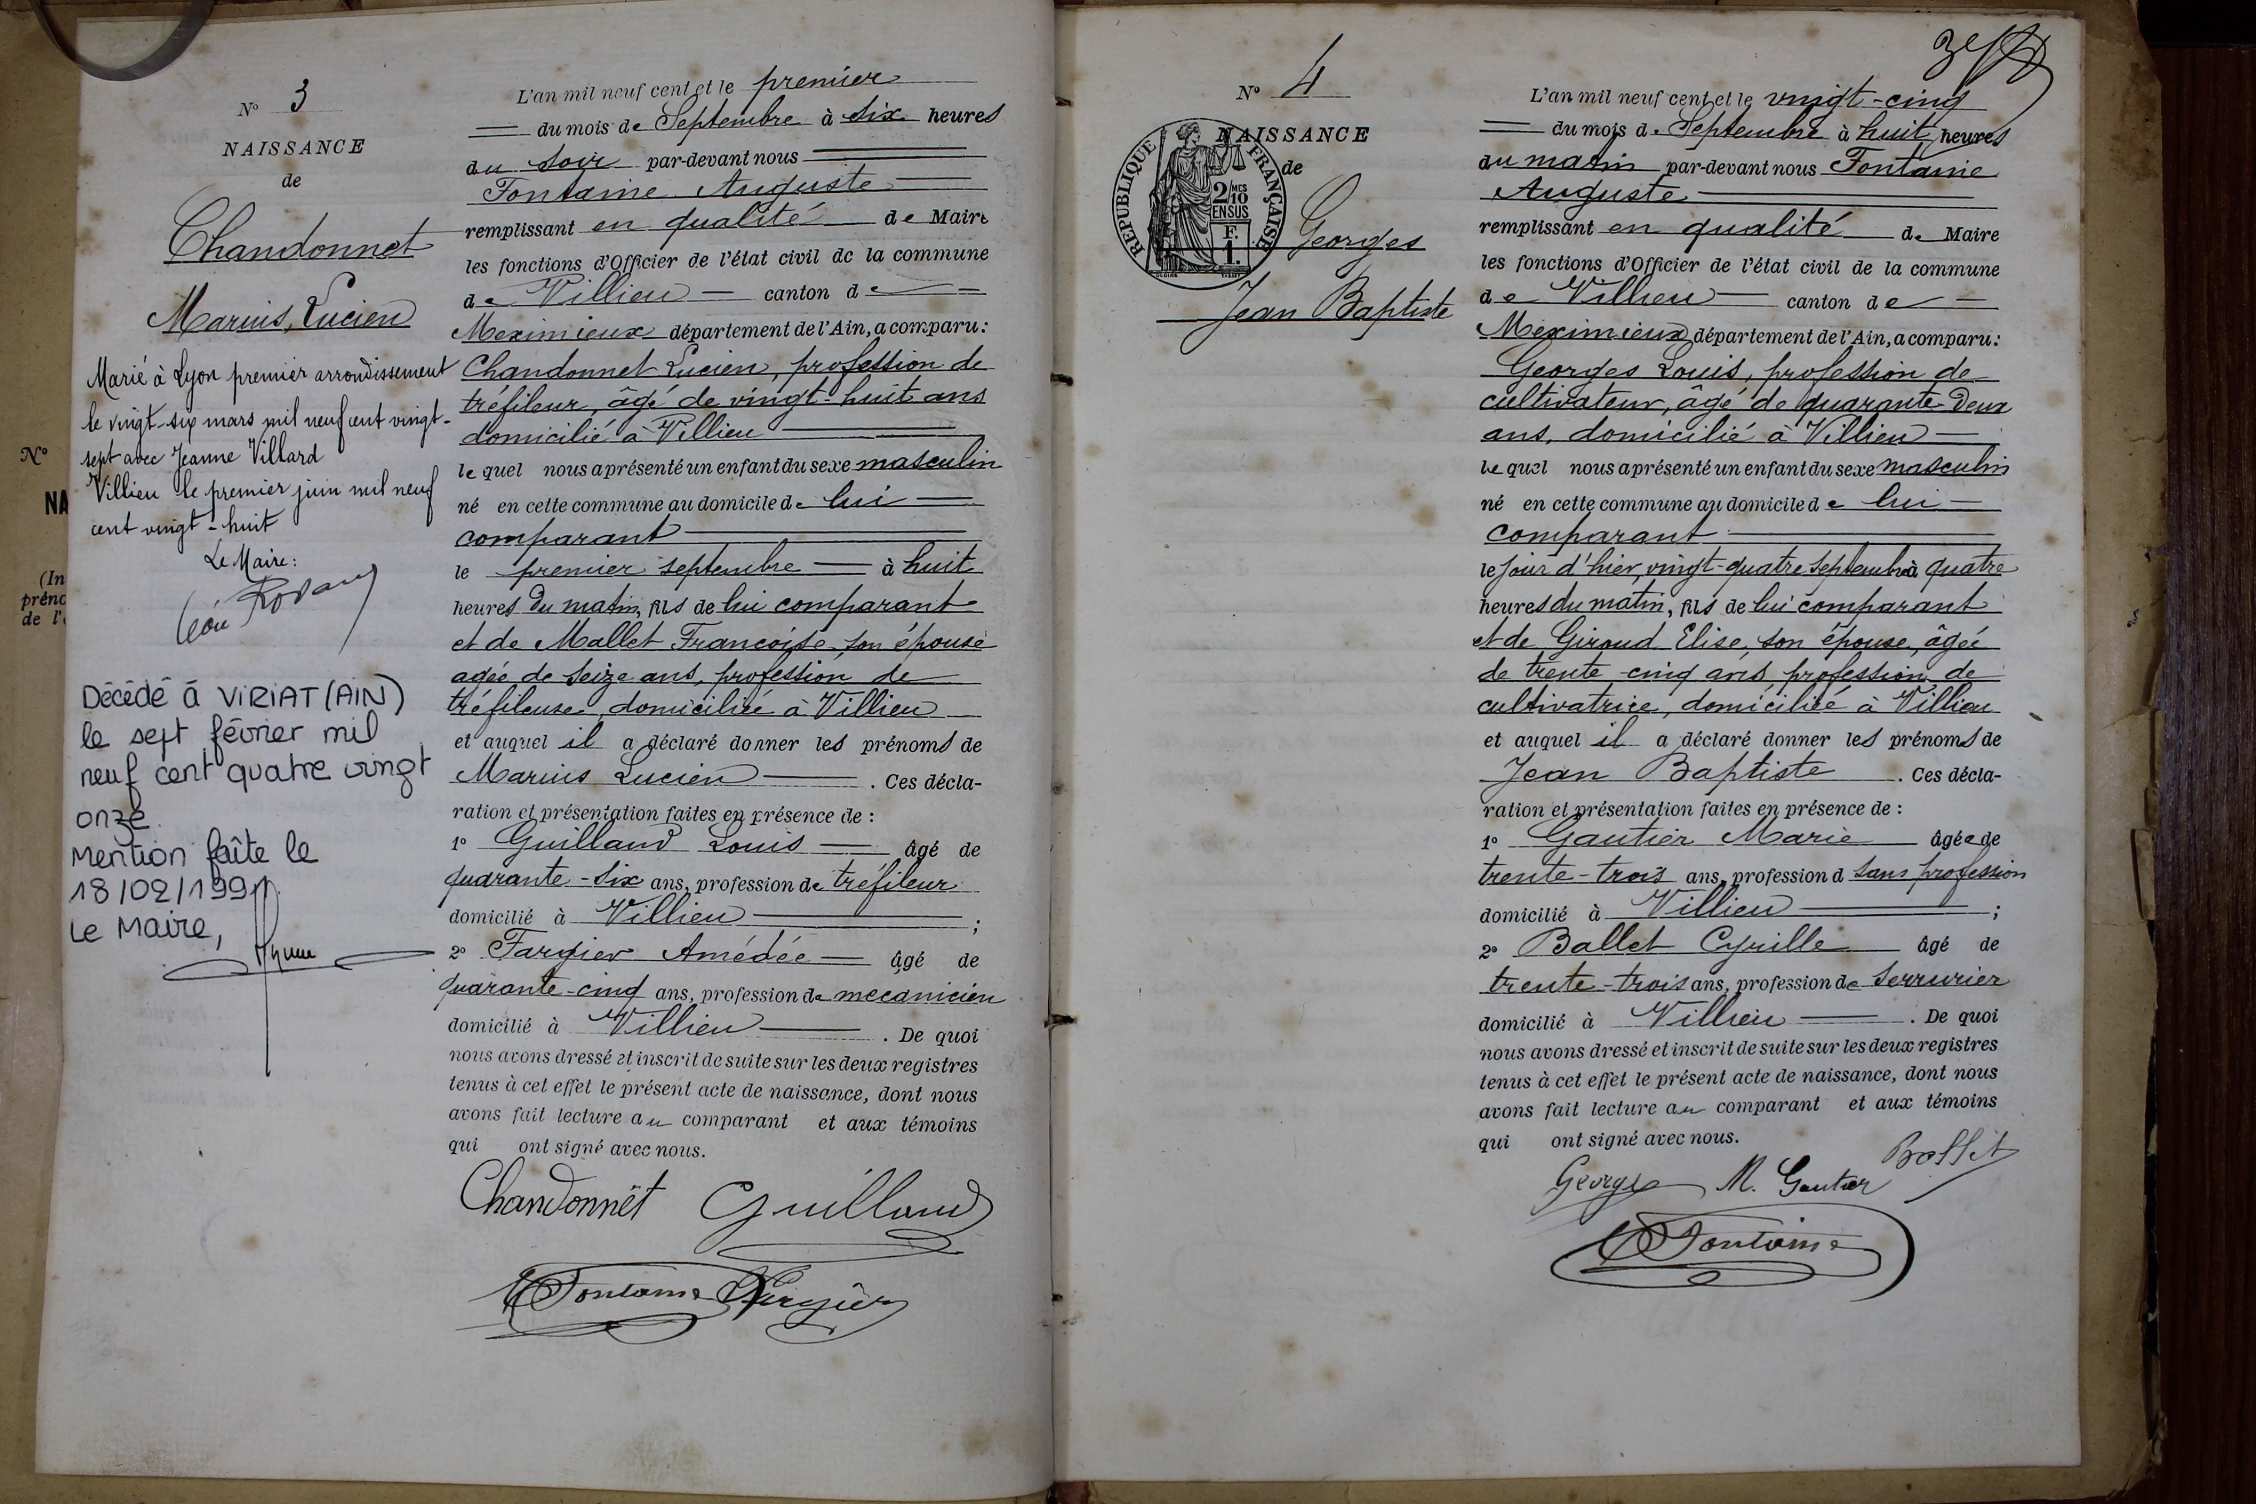 N° 3
NAISSANCE
de
Chandonnet
Marius, Lucien
Marié à Lyon premier arrondissement
le vingt-six mars mil neuf cent vingt-
sept avec Jeanne Villard
Villieu le premier juin mil neuf
cent vingt-huit
Le Maire:
Décédé à VIRIAT (AIN)
le sept février mil
neuf cent quatre vingt
onze
Mention faîte le
18/02/1991
Le Maire,
L'an mil neuf cent et le premier
du mois de Septembre à six heures
du soir par-devant nous
Fontaine Auguste
remplissant en qualité de Maire
les fonctions d'Officier de l'état civil de la commune
de Villieu canton de
Meximieux département de l'Ain, a comparu:
Chandonnet Lucien, profession de
tréfileur, âgé de vingt-huit ans
domicilié à Villieu
lequel nous a présenté un enfant du sexe masculin
né en cette commune au domicile de lui
comparant
le premier septembre à huit
heures du matin, fils de lui comparant
et de Mallet Françoise son épouse
agée de seize ans, profession de
tréfileuse, domiciliée à Villieu
et auquel il a déclaré donner les prénoms de
Marius Lucien. Ces décla-
ration et présentation faites en présence de :
1° Guilland Louis âgé de
quarante-six ans, profession de tréfileur
domicilié à Villieu ;
2° Fargier Amédée âgé de
quarante-cinq ans, profession de mecanicien
domicilié à Villieu. De quoi
nous avons dressé et inscrit de suite sur les deux registres
tenus à cet effet le présent acte de naissance, dont nous
avons fait lecture au comparant et aux témoins
qui ont signé avec nous.
Chandonnet Guilland
Fontaine Fargier
N°
NA
(In
préno
de l'
N° 4
NAISSANCE
de
REPUBLIQUE FRANÇAISE
2/10
EN SUS
F.
1.
Georges
Jean Baptiste
L'an mil neuf cent et le vingt-cinq
du mois de Septembre à huit heures
du matin par-devant nous Fontaine
Auguste
remplissant en qualité de Maire
les fonctions d'Officier de l'état civil de la commune
de Villieu canton de
Meximieux département de l'Ain, a comparu:
Georges Louis, profession de
cultivateur, âgé de quarante-deux
ans, domicilié à Villieu
lequel nous a présenté un enfant du sexe masculin
né en cette commune au domicile de lui
comparant
le jour d'hier, vingt-quatre septembre à quatre
heures du matin, fils de lui comparant
et de Giroud Elise, son épouse, âgée
de trente-cinq ans profession de
cultivatrice, domiciliée à Villieu
et auquel il a déclaré donner les prénoms de
Jean Baptiste. Ces décla-
ration et présentation faites en présence de :
1° Gautier Marie âgée de
trente-trois ans, profession d sans profession
domicilié à Villieu ;
2° Ballet Cyrille âgé de
trente-trois ans, profession de serrurier
domicilié à Villieu. De quoi
nous avons dressé et inscrit de suite sur les deux registres
tenus à cet effet le présent acte de naissance, dont nous
avons fait lecture au comparant et aux témoins
qui ont signé avec nous.
Georges M. Gautier
Fontaine